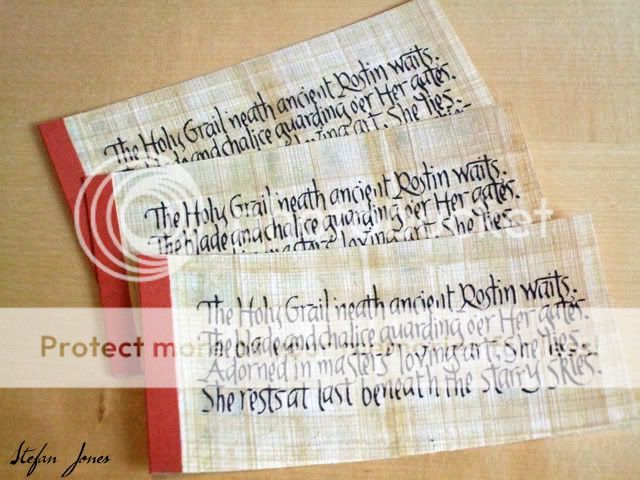 The Holy Grail 'neath ancient Roslin waits.
The blade and chalice guarding o'er Her gates.
loving art, She lies.
The Holy Grail 'neath ancient Roslin waits.
The blade and chalice guarding o'er Her gates.
in masters' loving art, She lies.
The Holy Grail 'neath ancient Roslin waits.
The blade and chalice guarding o'er Her gates.
Adorned in masters' loving art, She lies.
She rests at last beneath the starry skies.
Protect more
Stefan Jones